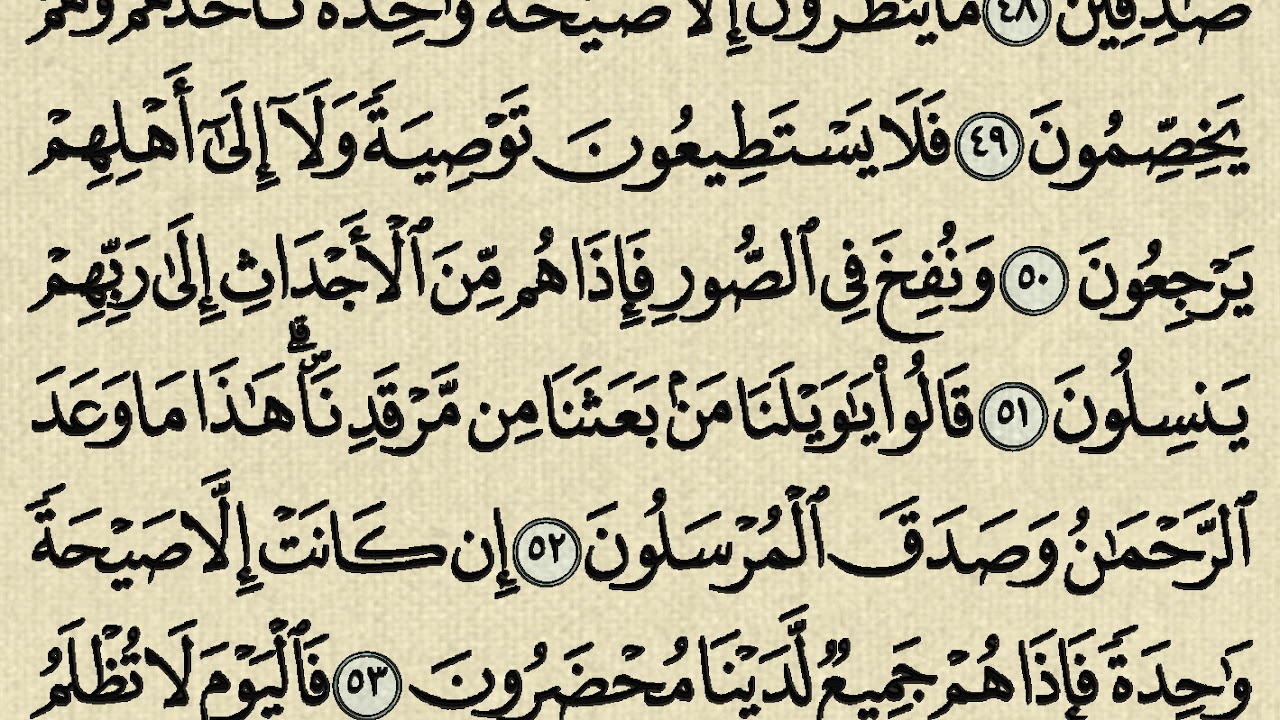 صَـٰدِقِينَ ٤٨ مَا يَنظُرُونَ إِلَّا صَيْحَةً وَٰحِدَةً تَأْخُذُهُمْ وَهُمْ
يَخِصِّمُونَ ٤٩ فَلَا يَسْتَطِيعُونَ تَوْصِيَةً وَلَآ إِلَىٰٓ أَهْلِهِمْ
يَرْجِعُونَ ٥٠ وَنُفِخَ فِى ٱلصُّورِ فَإِذَا هُم مِّنَ ٱلْأَجْدَاثِ إِلَىٰ رَبِّهِمْ
يَنسِلُونَ ٥١ قَالُوا۟ يَـٰوَيْلَنَا مَنۢ بَعَثَنَا مِن مَّرْقَدِنَا ۜ ۗ هَـٰذَا مَا وَعَدَ
ٱلرَّحْمَـٰنُ وَصَدَقَ ٱلْمُرْسَلُونَ ٥٢ إِن كَانَتْ إِلَّا صَيْحَةً
وَٰحِدَةً فَإِذَا هُمْ جَمِيعٌ لَّدَيْنَا مُحْضَرُونَ ٥٣ فَٱلْيَوْمَ لَا تُظْلَمُ